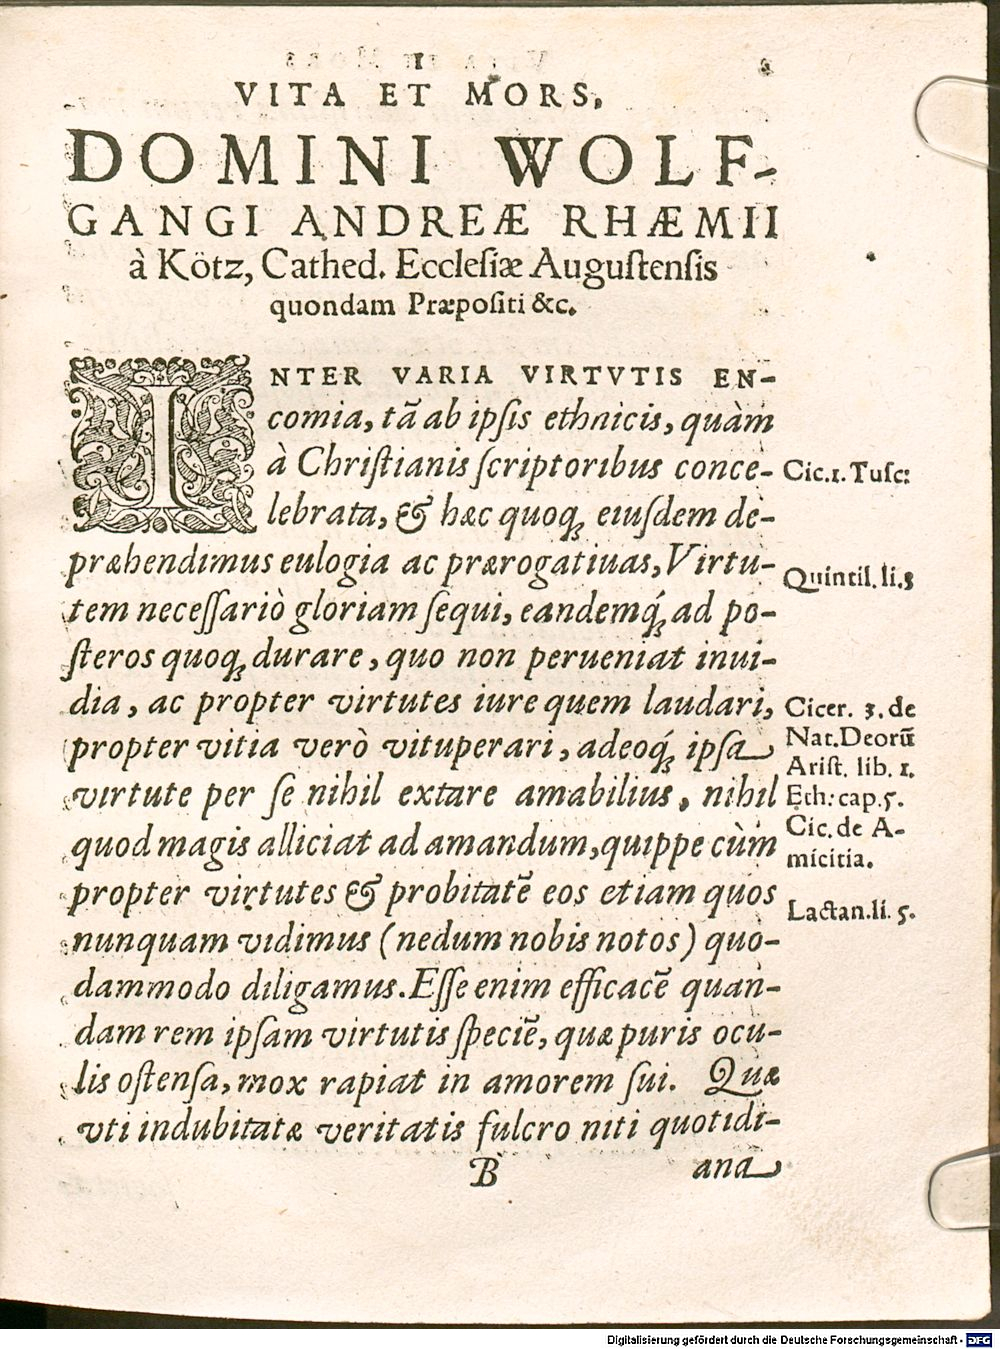 VITA ET MORS,
DOMINI WOLF-
GANGI ANDREÆ RHÆMII
à Kötz, Cathed. Ecclesiæ Augustensis
quondam Præpositi &c.
INTER VARIA VIRTVTIS EN-
comia, tā ab ipsis ethnicis, quàm
à Christianis scriptoribus conce-
Cic.1. Tusc:
lebrata, & hæc quoq; eiusdem de-
præhendimus eulogia ac prærogatiuas, Virtu-
Quintil. li.3
tem necessariò gloriam sequi, eandemq́; ad po-
steros quoq; durare, quo non perueniat inui-
dia, ac propter virtutes iure quem laudari,
Cicer. 3. de
propter vitia verò vituperari, adeoq́; ipsa
Nat. Deorū
Arist. lib. 1.
virtute per se nihil extare amabilius, nihil
Eth: cap. 5.
quod magis alliciat ad amandum, quippe cùm
Cic. de A-
micitia.
propter virtutes & probitatē eos etiam quos
Lactan. li. 5.
nunquam vidimus (nedum nobis notos) quo-
dammodo diligamus. Esse enim efficacē quan-
dam rem ipsam virtutis speciē, quæ puris ocu-
lis ostensa, mox rapiat in amorem sui. Quæ
vti indubitatæ veritatis fulcro niti quotidi-
B ana
Digitalisierung gefördert durch die Deutsche Forschungsgemeinschaft - DFG